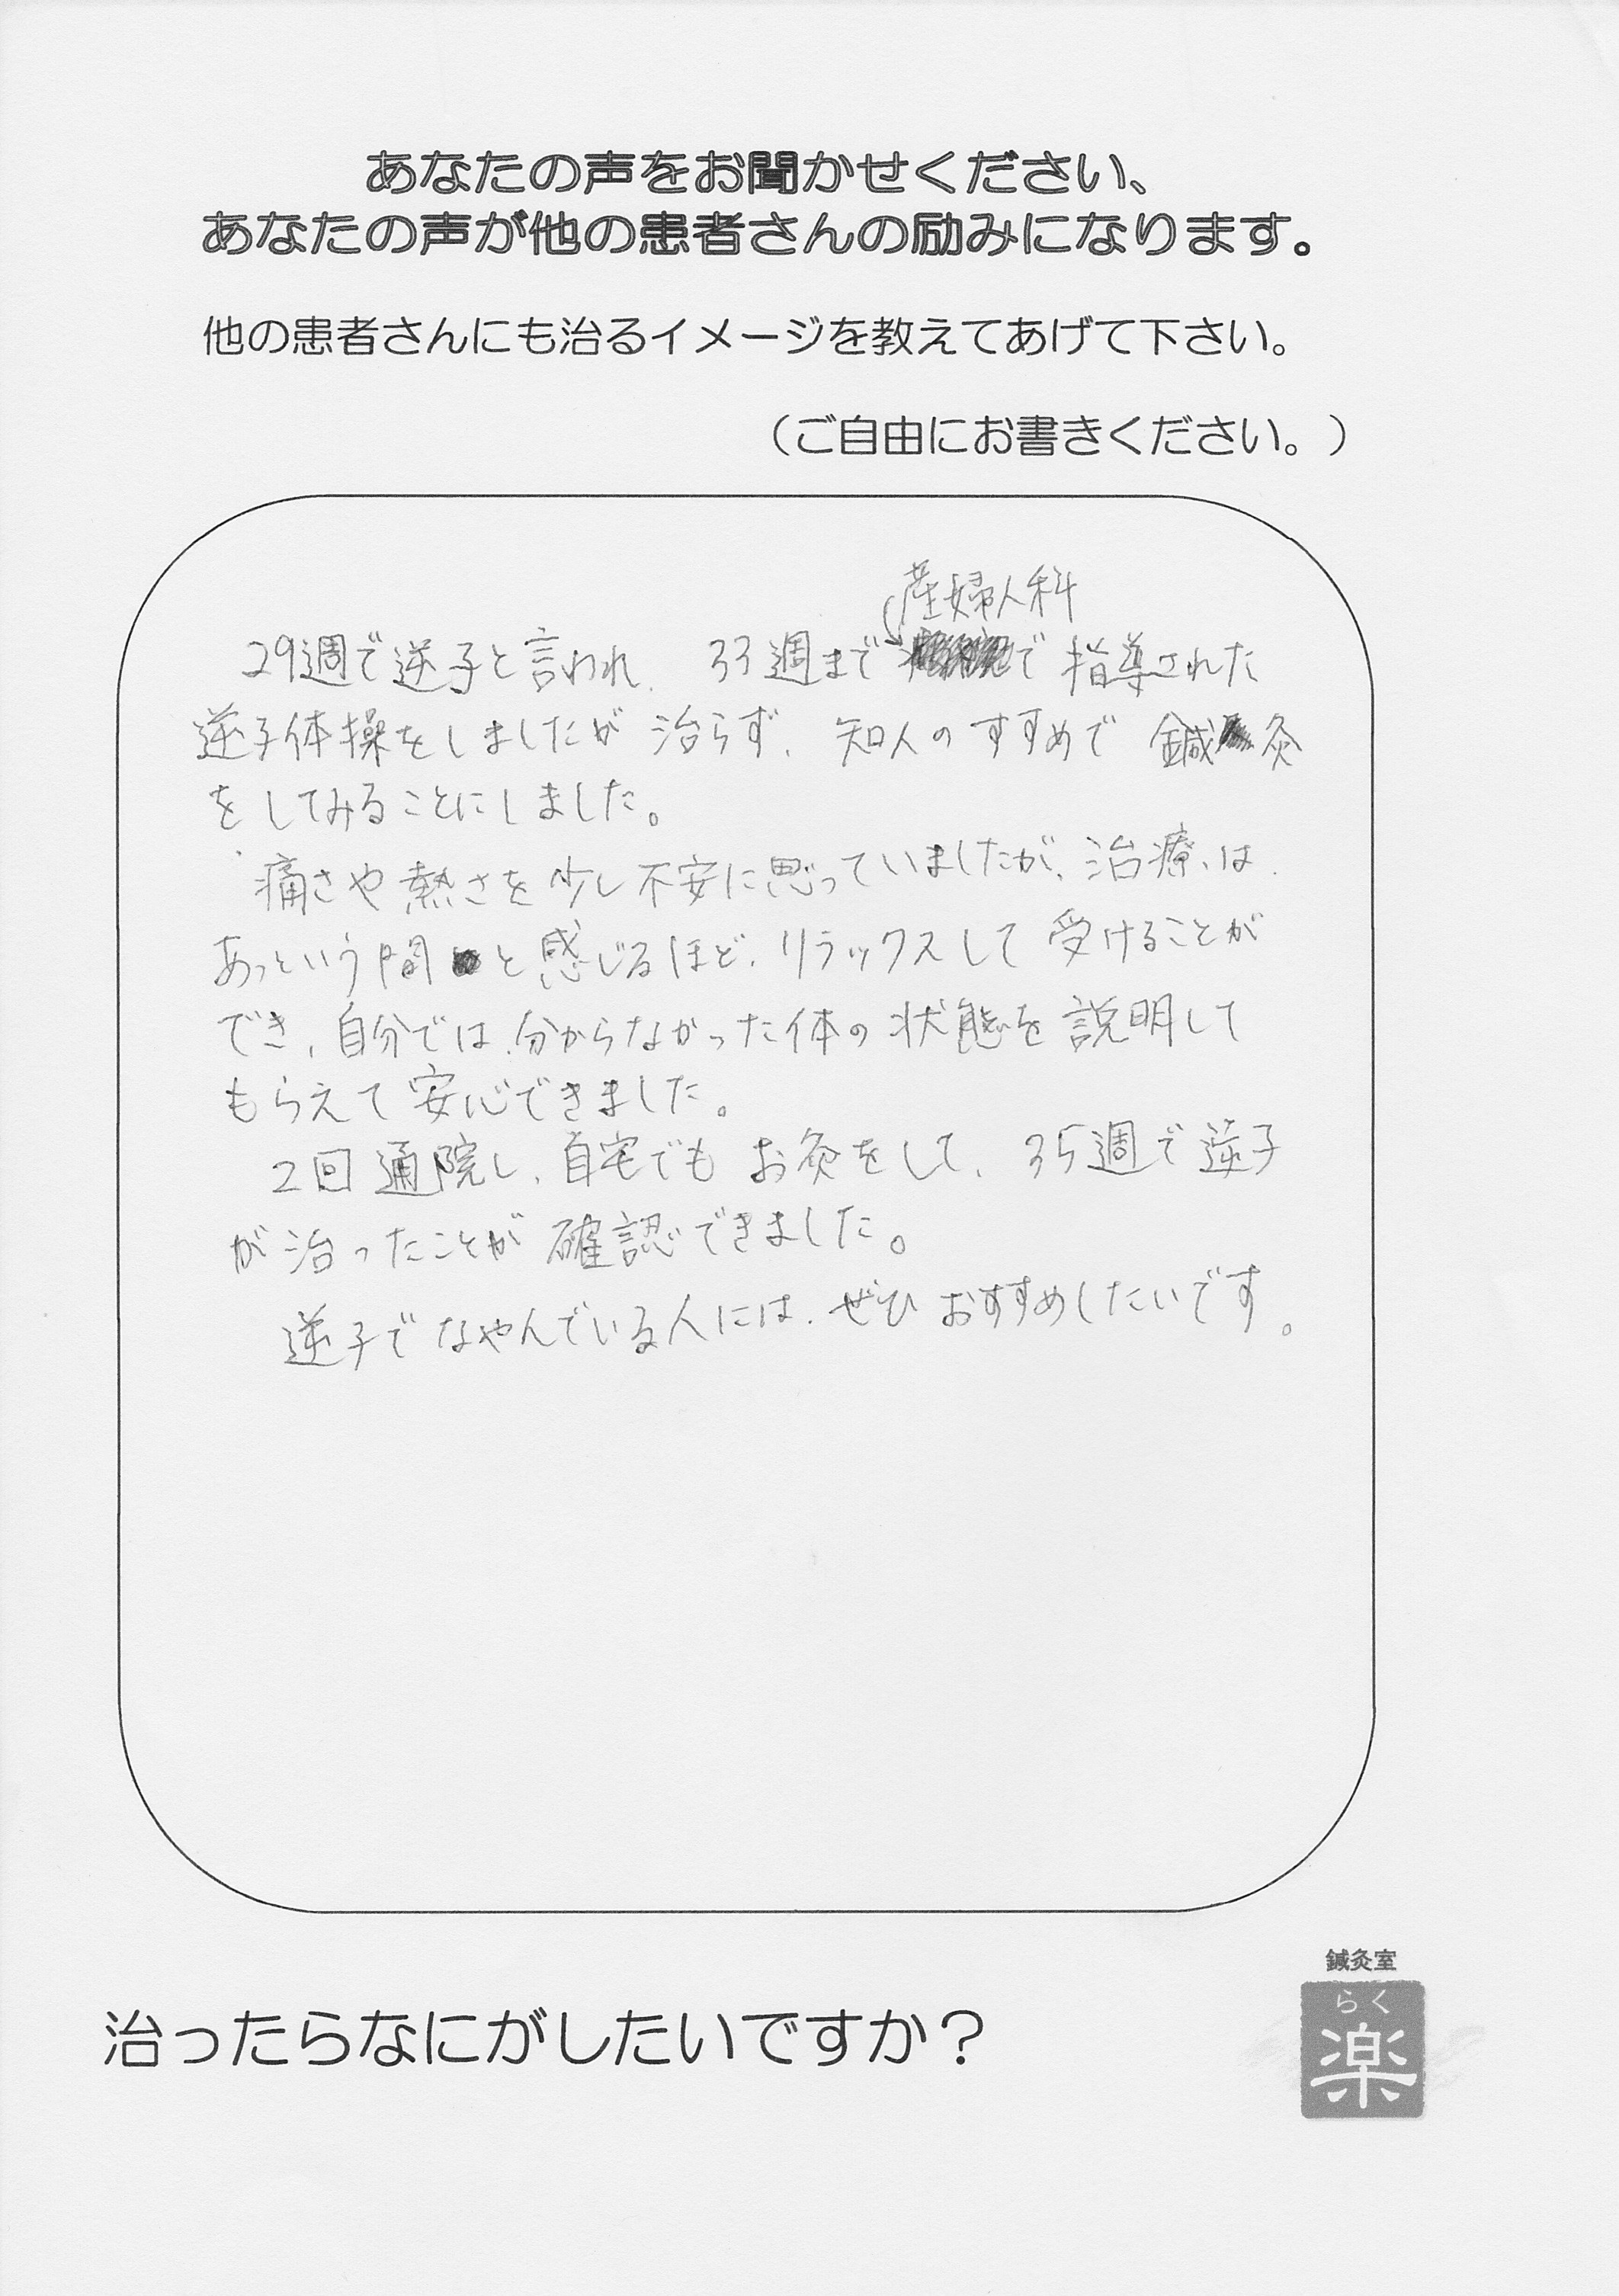 あなたの声をお聞かせください、
あなたの声が他の患者さんの励みになります。
他の患者さんにも治るイメージを教えてあげて下さい。
（ご自由にお書きください。）
産婦人科
29週で逆子と言われ、33週までで指導された
逆子体操をしましたが治らず、知人のすすめで鍼灸
をしてみることにしました。
痛さや熱さを少し不安に思っていましたが、治療は、
あっという間と感じるほど、リラックスして受けることが
でき、自分では、分からなかった体の状態を説明して
もらえて安心できました。
2回通院し、自宅でもお灸をして、35週で逆子
が治ったことが確認できました。
逆子でなやんでいる人には、ぜひおすすめしたいです。
鍼灸室
らく
楽
治ったらなにがしたいですか？